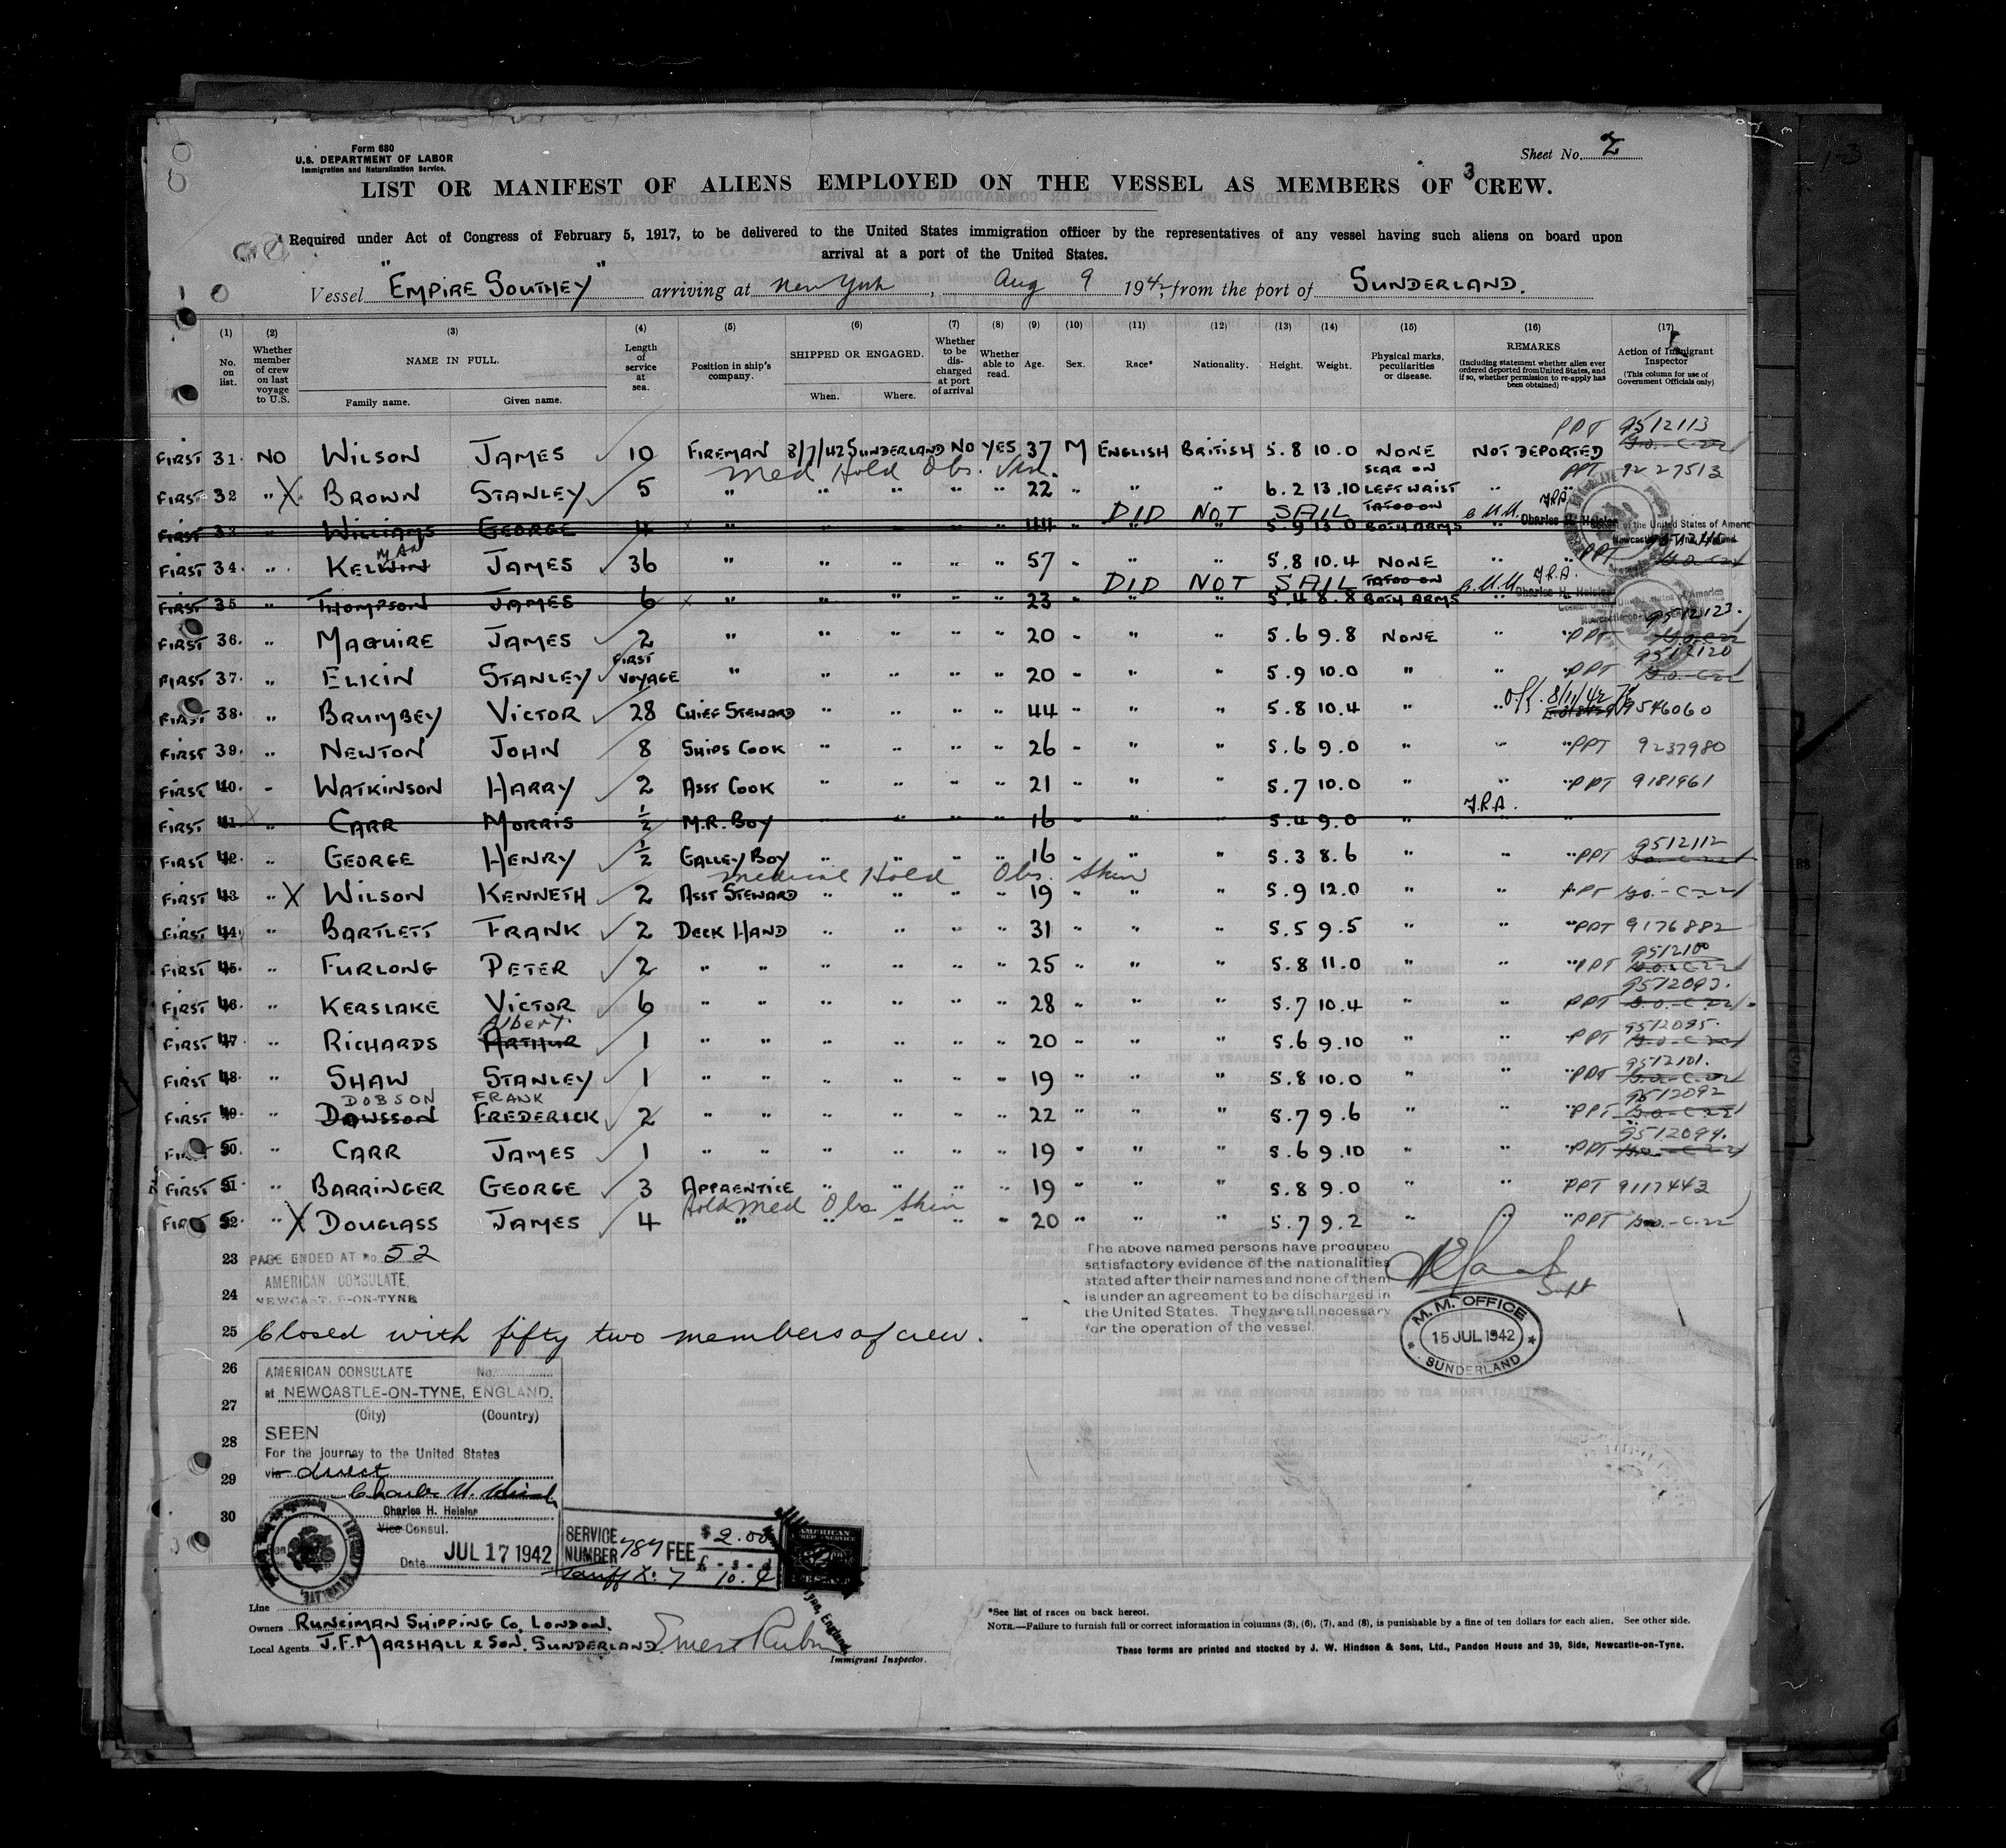 Form 680
U.S. DEPARTMENT OF LABOR
Immigration and Naturalization Service.
Sheet No. 2
3
LIST OR MANIFEST OF ALIENS EMPLOYED ON THE VESSEL AS MEMBERS OF CREW.
Required under Act of Congress of February 5, 1917, to be delivered to the United States immigration officer by the representatives of any vessel having such aliens on board upon
arrival at a port of the United States.
Vessel "EMPIRE SOUTHEY" arriving at New York, Aug 9 1942, from the port of SUNDERLAND.
(1) (2) (3) (4) (5) (6) (7) (8) (9) (10) (11) (12) (13) (14) (15) (16) (17)
No. on list. Whether member of crew on last voyage to U.S. NAME IN FULL. Family name. Given name. Length of service at sea. Position in ship's company. SHIPPED OR ENGAGED. When. Where. Whether to be discharged at port of arrival Whether able to read. Age. Sex. Race* Nationality. Height. Weight. Physical marks, peculiarities or disease. REMARKS (Including statement whether alien ever ordered deported from United States, and if so, whether permission to re-apply has been obtained) Action of Immigrant Inspector (This column for use of Government Officials only)
FIRST 31. NO WILSON JAMES ✓ 10 FIREMAN 8/7/42 SUNDERLAND NO YES 37 M ENGLISH BRITISH 5.8 10.0 NONE NOT DEPORTED PPT 9512113
Med Hold Obs.
FIRST 32 " X BROWN STANLEY ✓ 5 " " " " " 22 " " " 6.2 13.10 SCAR ON LEFT WRIST " " PPT 9227513
DID NOT SAIL C.H.H. J.R.A.
FIRST 33 " WILLIAMS GEORGE 4 " " " " " 44 " " " 5.9 13.0 TATOO ON BOTH ARMS " Charles H. Heisler
Consul of the United States of America
Newcastle-on-Tyne, England
FIRST 34. " KELWIN MAN JAMES ✓ 36 " " " " " 57 " " " 5.8 10.4 NONE " " PPT
DID NOT SAIL C.H.H. J.R.A.
FIRST 35 " THOMPSON JAMES 6 " " " " " 23 " " " 5.4 8.8 TATOO ON BOTH ARMS " Charles H. Heisler
FIRST 36. " MAGUIRE JAMES ✓ 2 " " " " " 20 " " " 5.6 9.8 NONE " " PPT 9512123.
FIRST 37. " ELKIN STANLEY ✓ FIRST VOYAGE " " " " " 20 " " " 5.9 10.0 " " " PPT 9512120
FIRST 38. " BRUMBEY VICTOR ✓ 28 CHIEF STEWARD " " " " 44 " " " 5.8 10.4 " " Off. 8/11/42 9546060
FIRST 39. " NEWTON JOHN ✓ 8 SHIPS COOK " " " " 26 " " " 5.6 9.0 " " " PPT 9237980
FIRST 40. " WATKINSON HARRY ✓ 2 ASST COOK " " " " 21 " " " 5.7 10.0 " " " PPT 9181961
J.R.A.
FIRST 41. " CARR MORRIS ½ M.R. BOY " " " " 16 " " " 5.4 9.0 " " "
FIRST 42. " GEORGE HENRY ✓ ½ GALLEY BOY " " " " 16 " " " 5.3 8.6 " " " PPT 9512112
Medical Hold Obs. Skin
FIRST 43 " X WILSON KENNETH ✓ 2 ASST STEWARD " " " " 19 " " " 5.9 12.0 " " PPT G.O.-C-22
FIRST 44 " BARTLETT FRANK ✓ 2 DECK HAND " " " " 31 " " " 5.5 9.5 " " " PPT 9176882
FIRST 45. " FURLONG PETER ✓ 2 " " " " " " 25 " " " 5.8 11.0 " " " PPT 9512100
FIRST 46. " KERSLAKE VICTOR ✓ 6 " " " " " " 28 " " " 5.7 10.4 " " PPT 9512093.
FIRST 47 " RICHARDS ARTHUR Albert. ✓ 1 " " " " " " 20 " " " 5.6 9.10 " " " PPT 9512095.
FIRST 48. " SHAW STANLEY ✓ 1 " " " " " " 19 " " " 5.8 10.0 " " " PPT 9512101.
DOBSON FRANK
FIRST 49. " DAWSSON FREDERICK ✓ 2 " " " " " " 22 " " " 5.7 9.6 " " " PPT 9512092
FIRST 50. " CARR JAMES ✓ 1 " " " " " " 19 " " " 5.6 9.10 " " " PPT 9512094.
FIRST 51. " BARRINGER GEORGE ✓ 3 APPRENTICE " " " " 19 " " " 5.8 9.0 " " " PPT 9117443
Hold Med Obs Skin
FIRST 52. " X DOUGLASS JAMES ✓ 4 " " " " " 20 " " " 5.7 9.2 " " " PPT G.O.-C.22
23 PAGE ENDED AT No. 52
AMERICAN CONSULATE,
24 NEWCASTLE-ON-TYNE
The above named persons have produced
satisfactory evidence of the nationalities
stated after their names and none of them
is under an agreement to be discharged in
the United States. They are all necessary
for the operation of the vessel.
Supt
M. M. OFFICE
15 JUL 1942
SUNDERLAND
25 Closed with fifty two members of crew.
26
27
28
29
30
AMERICAN CONSULATE No.
at NEWCASTLE-ON-TYNE, ENGLAND.
(City) (Country)
SEEN
For the journey to the United States
via direct
Charles H. Heisler
Charles H. Heisler
Vice Consul.
Date JUL 17 1942
SERVICE NUMBER 787 FEE $2.00
£ - s - d
Tariff No. 7 10. 4
AMERICAN
Line
Owners RUNCIMAN SHIPPING CO, LONDON.
Local Agents J.F. MARSHALL & SON. SUNDERLAND.
Immigrant Inspector.
*See list of races on back hereof.
NOTE.—Failure to furnish full or correct information in columns (3), (6), (7), and (8), is punishable by a fine of ten dollars for each alien. See other side.
These forms are printed and stocked by J. W. Hindson & Sons, Ltd., Pandon House and 39, Side, Newcastle-on-Tyne.